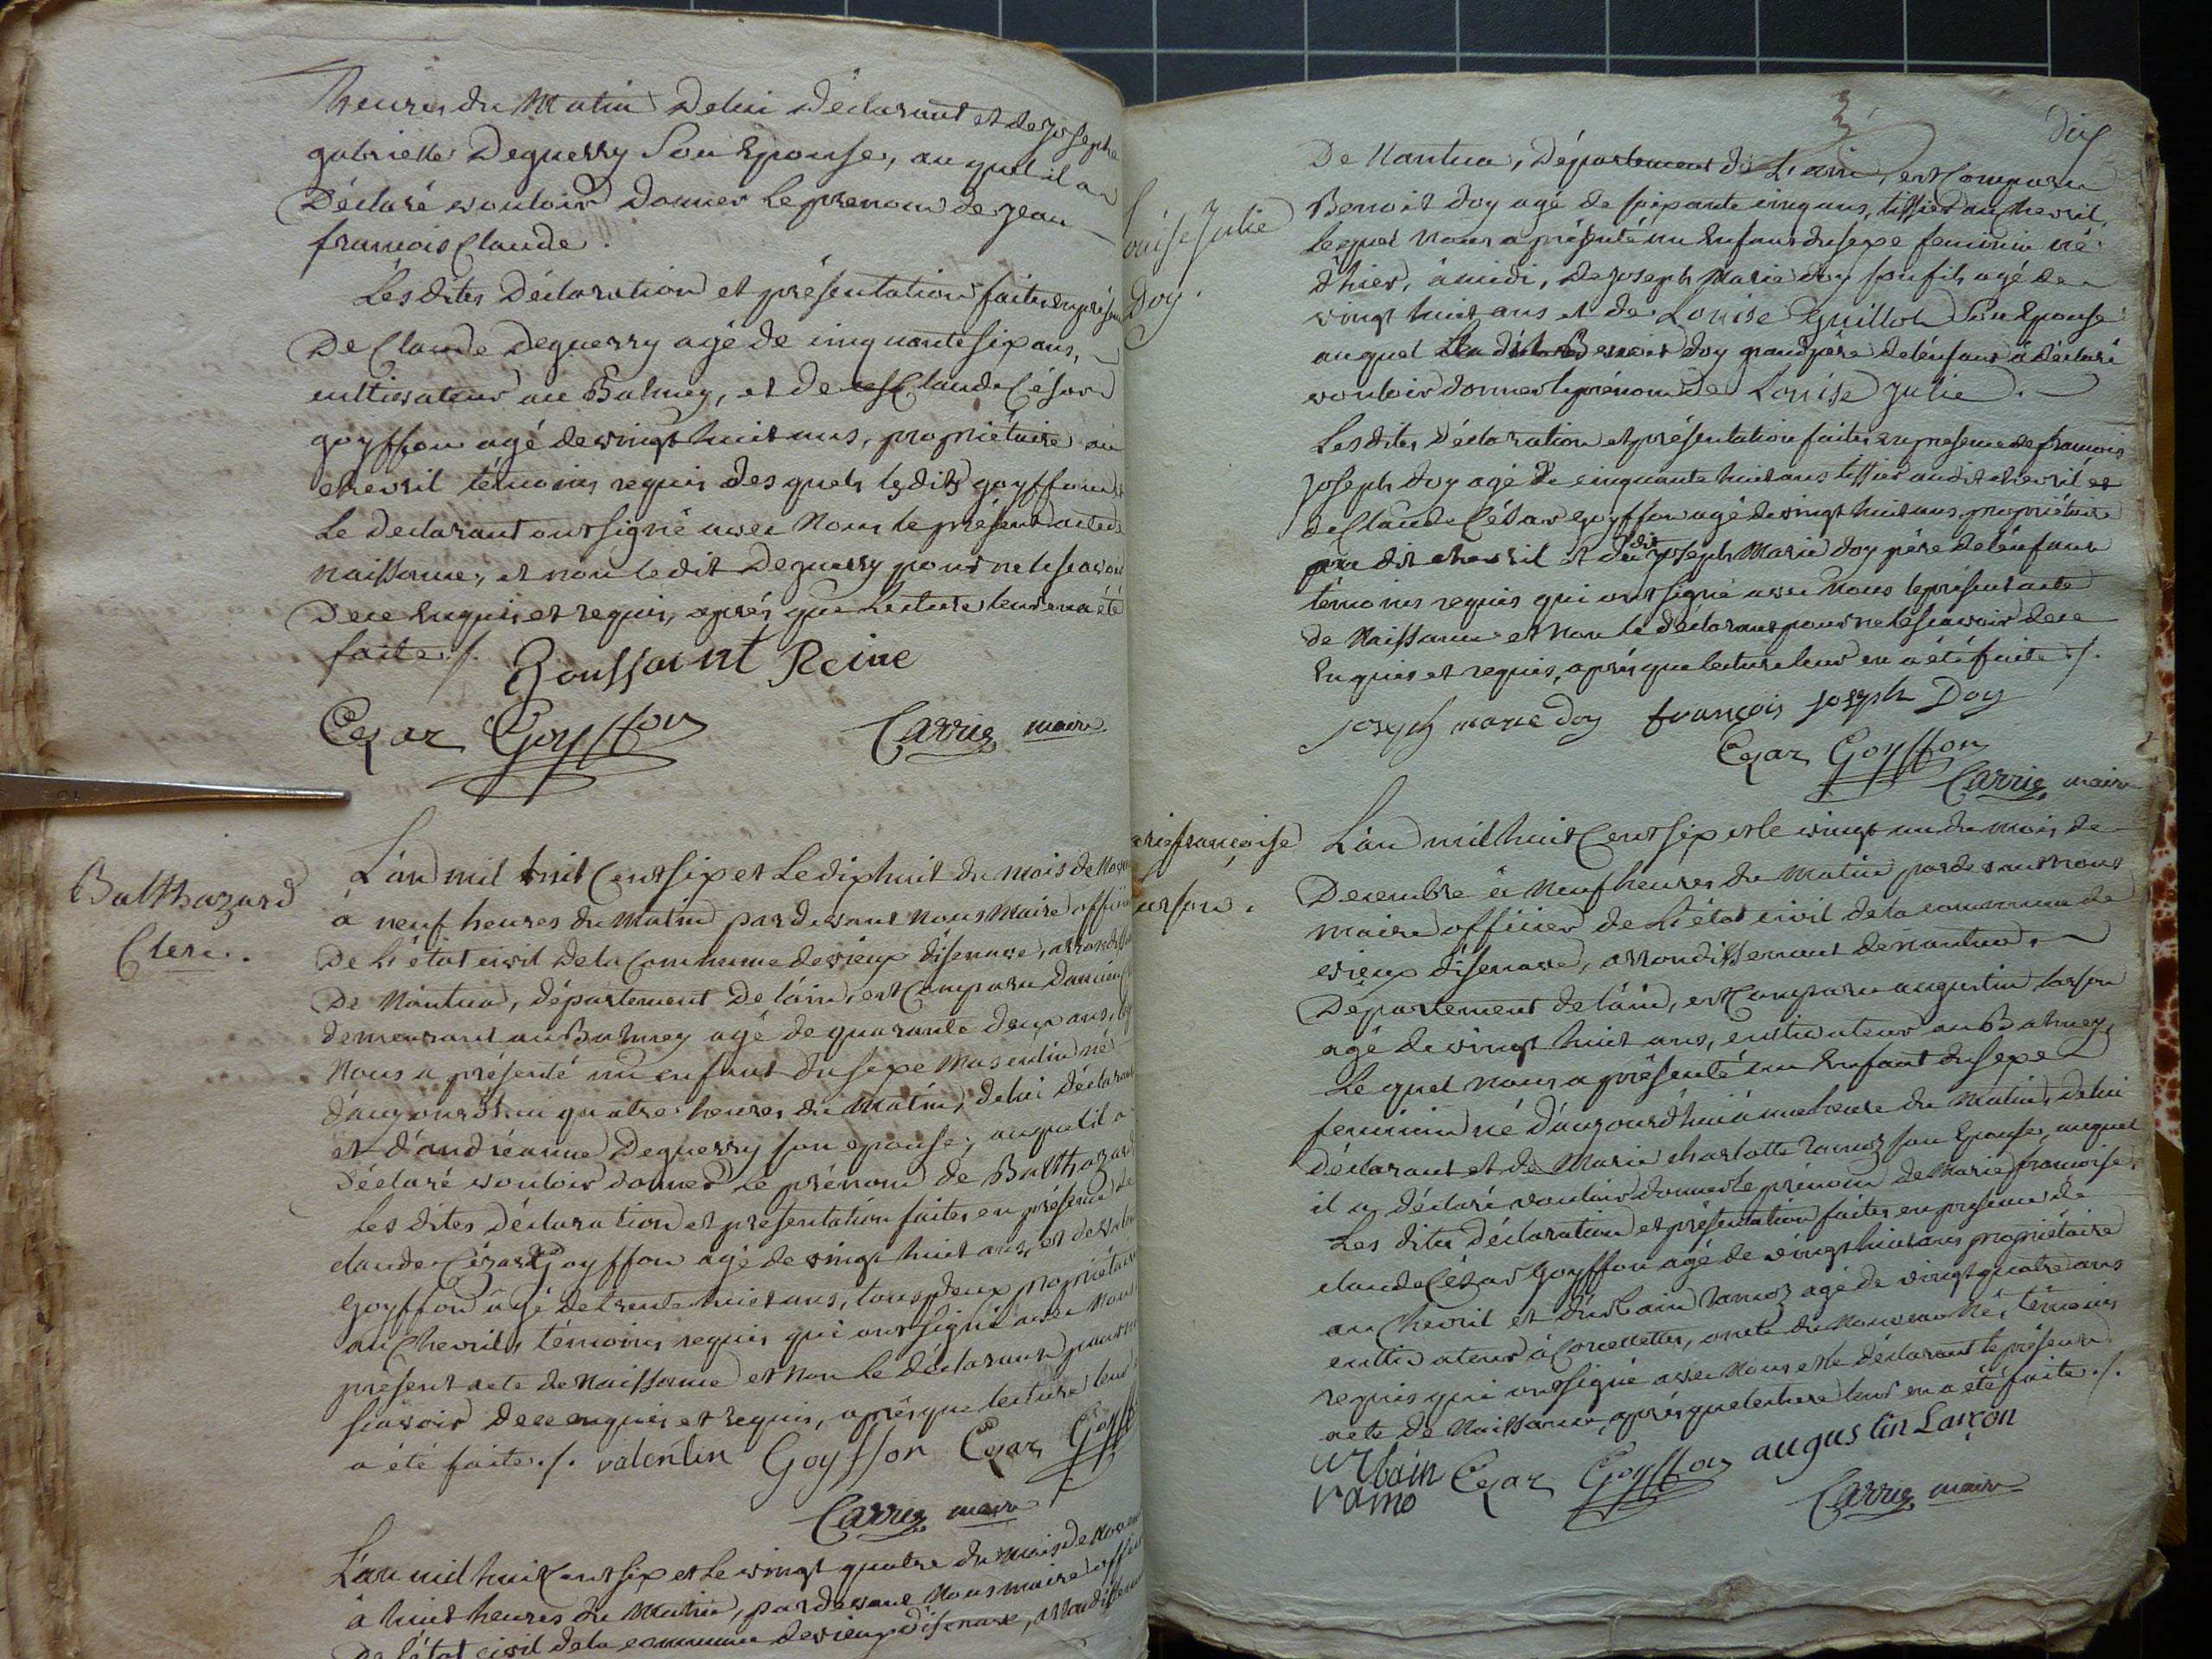 heures du Matin Delui Déclarant et de Josephe
gabrielle Deguerry Son Epouse, auquel il a
Déclaré vouloir Donner le prenom de Jean
francois Claude.
Les dites Déclaration et présentation faites en présen
De Claude Deguerry agé de cinquante six ans,
cultivateur au Balmey, et de Claude César
goyffon agé de vingt huit ans, propriétaire au
chevril témoins requis des quels le dit goyffon et
Le declarant ont signé avec Nous le présent acte de
naissance, et non le dit Deguerry pour ne le scavoir
De ce Enquis et requis, après que lecture leur en a été
faite ./.
Toussaint Reine
Cezar Goyffon
Carrier maire
Balthazard
Clerc.
L'an mil huit Cent six et Le dix huit du mois de Nov
à neuf heures du Matin pardevant Nous Maire offici
De L'état civil De la Commune de vieux disenave, arrondiss
De Nantua, département De l'ain, est Comparu Damien
demeurant au Balmey agé de quarante deux ans, leq
Nous a présenté un enfant du sexe Masculin né
d'aujourdhui quatre heures du Matin, de lui déclarant
et d'andréanne Deguerry son epouse, auquel il a
Déclaré vouloir donner Le prénom de Balthazard
Les dites Déclaration et présentation faites en présence de
claude Cézar Goyffon agé de vingt huit ans, et de valen
Goyffon agé de trente huit ans, tous deux propriétaires
au Chevril, témoins requis qui ont signé avec Nous
présent acte de Naissance et Non le déclarant pour ne
scavoir De ce enquis et requis, après que lecture leur
a été faite ./. valentin Goyffon Cezar Goyff
Carrier maire
L'an mil huit Cent six et Le vingt quatre du mois de Nov
à huit heures du Matin, pardevant Nous maire offici
De l'état civil de la commune de vieux disenave, arrondissem
3
Dix
De Nantua, Département de L'ain, est Comparu
ouise Julie
Doy.
Benoit doy agé de soixante cinq ans, tissier au chevril,
lequel Nous a présenté un Enfant du sexe feminin né
d'hier, à midi, de Joseph Marie doy son fils agé de
vingt huit ans et de Louise Guillot Son Epouse
auquel Le dit Benoit doy grand père de l'enfant à déclaré
vouloir donner le prénom de Louise Julie.
Les dites Déclaration et présentation faites en presence de francois
Joseph doy agé de cinquante huit ans tissier au dit chevril et
de Claude César Goyffon agé de vingt huit ans, propriétaire
au dit chevril et du dit Joseph Marie doy père de l'enfant
témoins requis qui ont signé avec Nous le présent acte
de Naissance et Non le déclarant pour ne le scavoir de ce
Enquis et requis, après que lecture leur en a été faite ./.
joseph marie doy françois joseph Doy
Cezar Goyffon
Carrier maire
arie françoise
arson.
L'an mil huit Cent six et le vingt un du mois de
Decembre à Neuf heures du Matin pardevant Nous
maire officier de L'état civil de la commune de
vieux disenave, arrondissement de nantua,
Département de l'ain, est Comparu augustin larson
agé de vingt huit ans, cultivateur au Balmey,
Le quel nous a présenté un Enfant du sexe
feminin né d'aujourdhui à une heure du Matin, de lui
déclarant et de Marie charlotte Ramoz son Epouse, auquel
il a déclaré vouloir donner le prénom de Marie francoise,
Les dites Déclaration et présentation faites en presence de
claude César Goyffon agé de vingt huit ans propriétaire
au Chevril et d'urbain Ramoz agé de vingt quatre ans
cultivateur à Corcelettes, oncle du Nouveau Né, témoins
requis qui ont signé avec Nous et le déclarant le présent
acte de Naissance, après que lecture leur en a été faite ./.
urbain
ramo
Cezar Goyffon
augustin Larçon
Carrier maire